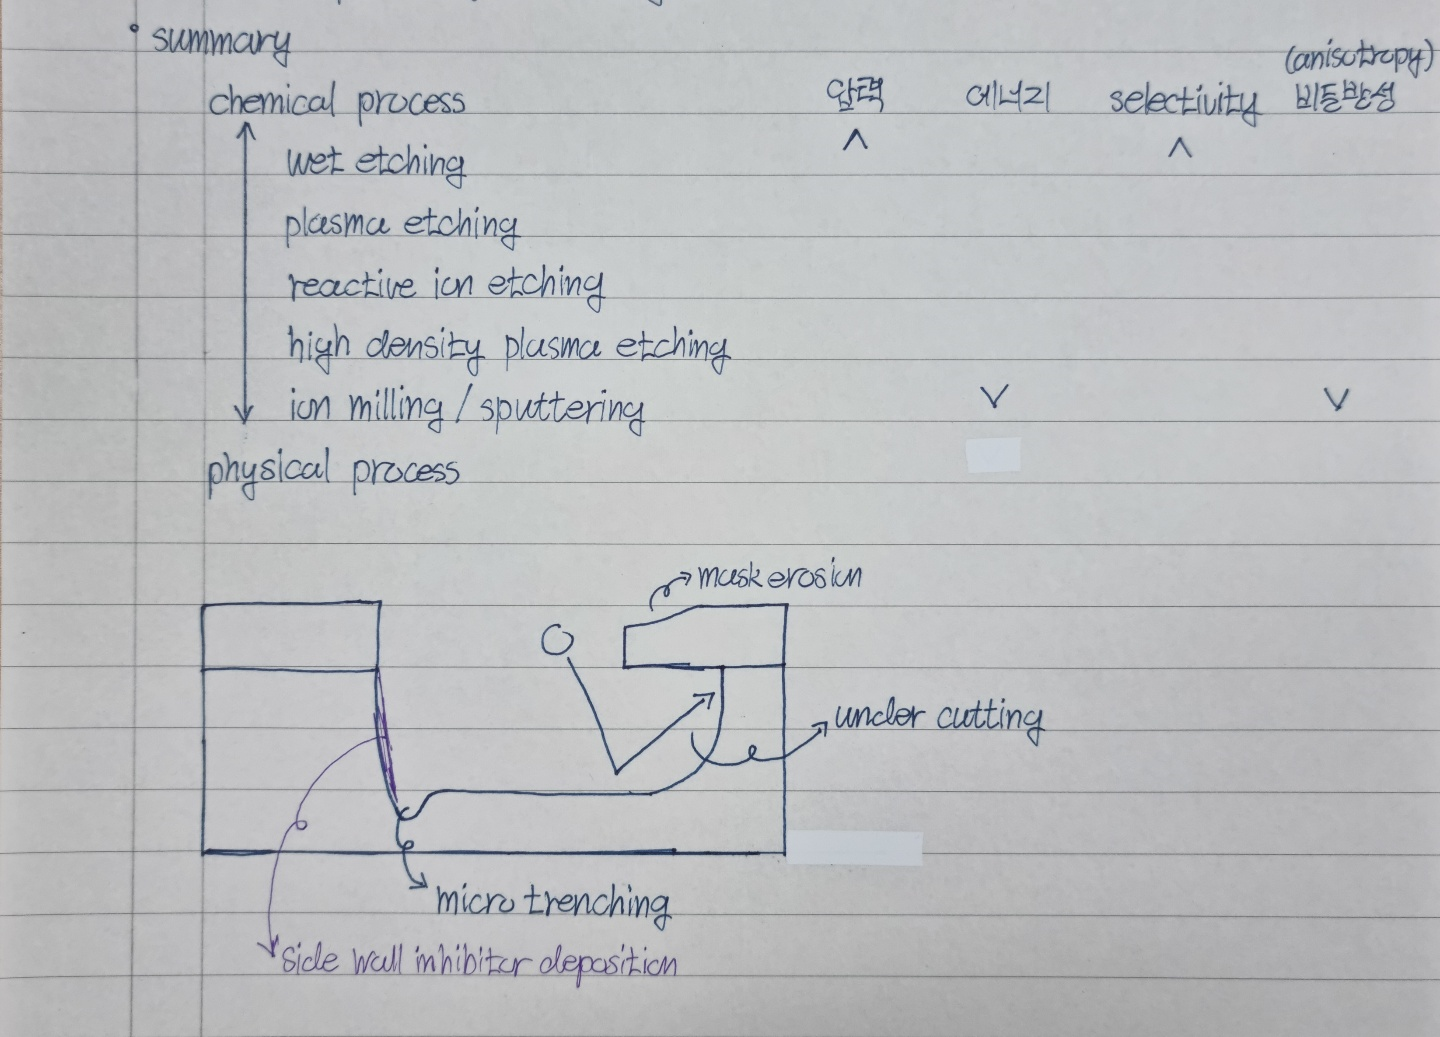 • summary
(anisotropy)
chemical process 압력 에너지 selectivity 비등방성
∧ ∧
wet etching
plasma etching
reactive ion etching
high density plasma etching
ion milling / sputtering ∨ ∨
physical process
mask erosion
under cutting
micro trenching
side wall inhibitor deposition